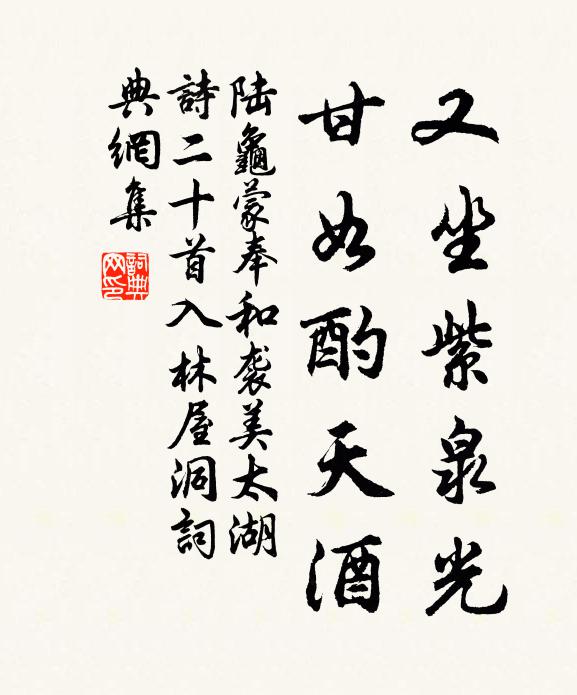 又坐紫泉光
甘如酌天酒
陆龜蒙奉和袭美太湖
詩二十首入林屋洞詞
典網集
詞典
网印